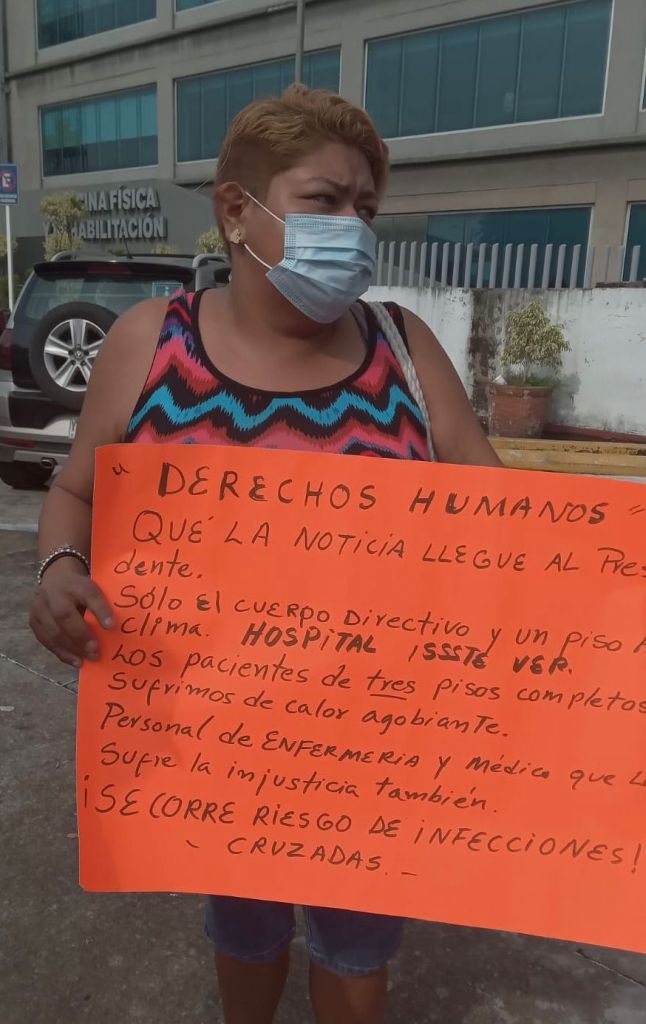 INA FÍSICA
Y REHABILITACIÓN
" DERECHOS HUMANOS "
QUÉ LA NOTICIA LLEGUE AL Pres
dente.
Sólo EL CUERPO Directivo y un piso
clima. HOSPITAL ISSSTE VER.
Los pacientes de tres pisos completos
Sufrimos de calor agobiante.
Personal de ENFERMERIA y Médico que
Sufre la injusticia también.
¡SE CORRE RIESGO DE INFECCIONES!
- CRUZADAS. -